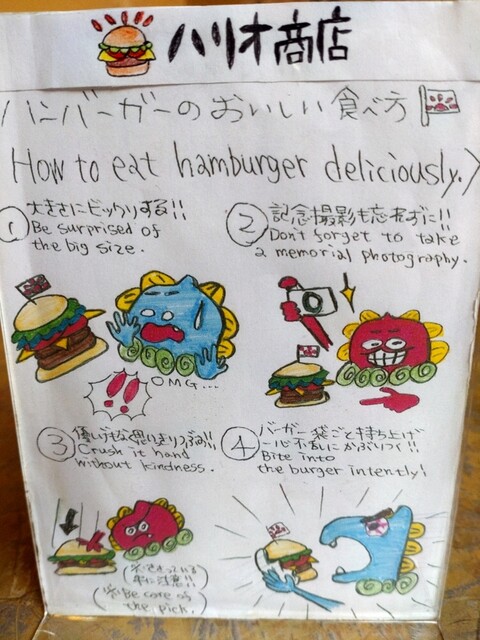 ハリオ商店
ハンバーガーのおいしい食べ方
How to eat hamburger deliciously.
① 大きさにビックリする!!
Be surprised of
the big size.
② 記念撮影も忘れずに!!
Don't forget to take
a memorial photography.
OMG...
③ 優しげもな思いきりつぶす!!
Crush it hand
without kindness.
④ バーガー袋ごと持ち上げ
一心不乱にかぶりつく!!
Bite into
the burger intently!
※ささっている
串に注意!!
※Be care of
the pick.